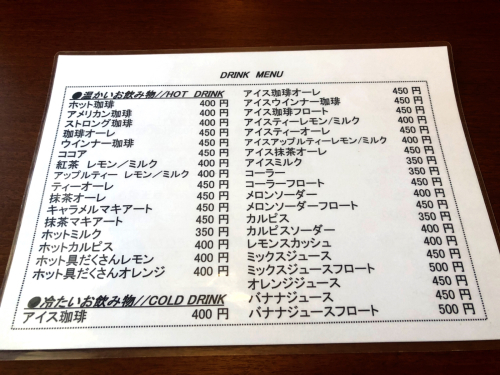 DRINK MENU
●温かいお飲み物//HOT DRINK
ホット珈琲 400 円
アメリカン珈琲 400 円
ストロング珈琲 400 円
珈琲オーレ 450 円
ウインナー珈琲 450 円
ココア 450 円
紅茶 レモン／ミルク 400 円
アップルティー レモン／ミルク 400 円
ティーオーレ 450 円
抹茶オーレ 450 円
キャラメルマキアート 450 円
抹茶マキアート 450 円
ホットミルク 350 円
ホットカルピス 400 円
ホット具だくさんレモン 400 円
ホット具だくさんオレンジ 400 円
●冷たいお飲み物//COLD DRINK
アイス珈琲 400 円
アイス珈琲オーレ 450 円
アイスウインナー珈琲 450 円
アイス珈琲フロート 450 円
アイスティーレモン/ミルク 400 円
アイスティーオーレ 450 円
アイスアップルティーレモン/ミルク 400 円
アイス抹茶オーレ 450 円
アイスミルク 350 円
コーラー 350 円
コーラーフロート 450 円
メロンソーダー 400 円
メロンソーダーフロート 450 円
カルピス 350 円
カルピスソーダー 400 円
レモンスカッシュ 400 円
ミックスジュース 450 円
ミックスジュースフロート 500 円
オレンジジュース 450 円
バナナジュース 450 円
バナナジュースフロート 500 円